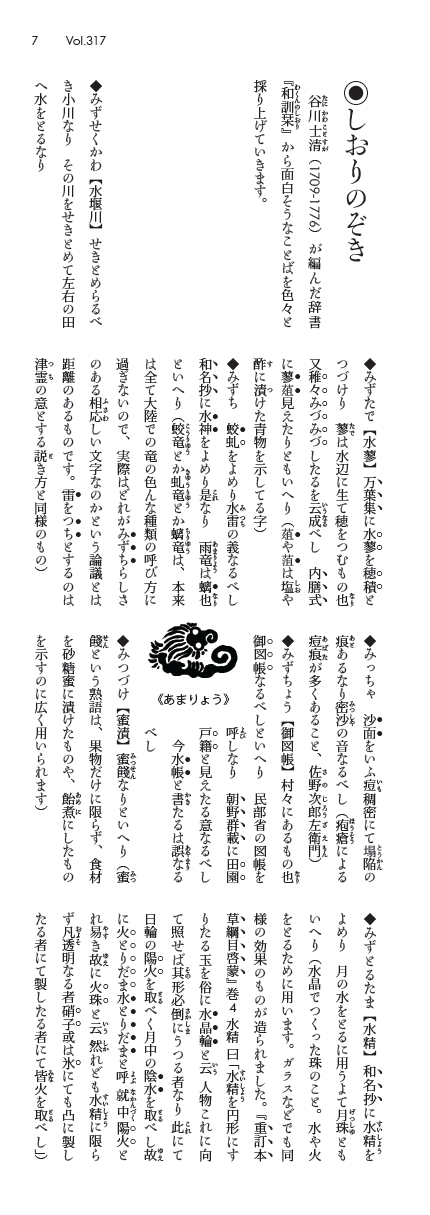 7 Vol.317
◉しおりのぞき
谷川士清（1709-1776）が編んだ辞書
『和訓栞』から面白そうなことばを色々と
採り上げていきます。
◆みずせくかわ【水堰川】せきとめらるべ
き小川なり　その川をせきとめて左右の田
へ水をとるなり
◆みずたで【水蓼】万葉集に水蓼を穂積と
つづけり　蓼は水辺に生て穂をつむもの也
又稚々みづみづしたるを云成べし　内膳式
に蓼菹見えたりともいへり（菹や菹は塩や
酢に漬けた青物を示してる字）
◆みずち　蛟虬をよめり水雷の義なるべし
和名抄に水神をよめり是なり　雨竜は螭也
といへり（蛟竜とか虬竜とか螭竜は、本来
は全て大陸での竜の色んな種類の呼び方に
過ぎないので、実際はどれがみずちらしき
のある相応しい文字なのかという論議とは
距離のあるものです。雷をつちとするのは
津霊の意とする説き方と同様のもの）
◆みっちゃ　沙面をいふ痘稠密にて塌陥の
痕あるなり密沙の音なるべし（疱瘡による
痘痕が多くあること、佐野次郎左衛門）
◆みずちょう【御図帳】村々にあるもの也
御図帳なるべしといへり　民部省の図帳を
呼しなり　朝野群載に田園
戸籍と見えたる意なるべし
今水帳と書たるは誤なる
べし
《あまりょう》
◆みつづけ【蜜漬】蜜餞なりといへり（蜜
餞という熟語は、果物だけに限らず、食材
を砂糖蜜に漬けたものや、飴煮にしたもの
を示すのに広く用いられます）
◆みずとるたま【水精】和名抄に水精を
よめり　月の水をとるに用うよて月珠とも
いへり（水晶でつくった珠のこと。水や火
をとるために用います。ガラスなどでも同
様の効果のものが造られました。『重訂本
草綱目啓蒙』巻4 水精 曰「水精を円形にす
りたる玉を俗に水晶輪と云 人物これに向
て照せば其形必倒にうつる者なり 此にて
日輪の陽火を取べく月中の陰水を取べし故
に火とりだま水とりだまと呼 就中陽火と
れ易き故に火珠と云 然れども水精に限ら
ず凡透明なる者硝子或は氷にても凸に製し
たる者にて製したる者にて皆火を取べし」）